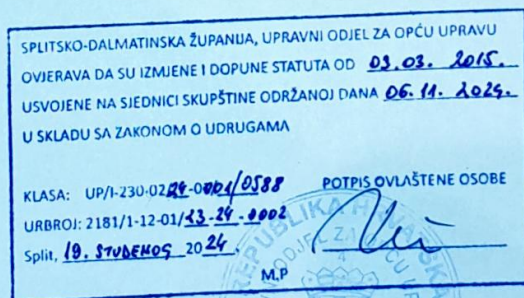 SPLITSKO-DALMATINSKA ŽUPANIJA, UPRAVNI ODJEL ZA OPĆU UPRAVU
OVJERAVA DA SU IZMJENE I DOPUNE STATUTA OD 03.03. 2015.
USVOJENE NA SJEDNICI SKUPŠTINE ODRŽANOJ DANA 06.11. 2024.
U SKLADU SA ZAKONOM O UDRUGAMA
KLASA: UP/I-230-02/24-01/0588 POTPIS OVLAŠTENE OSOBE
URBROJ: 2181/1-12-01/13-24-0002
Split, 19. STUDENOG 2024.
M.P
REPUBLIKA HRVATSKA